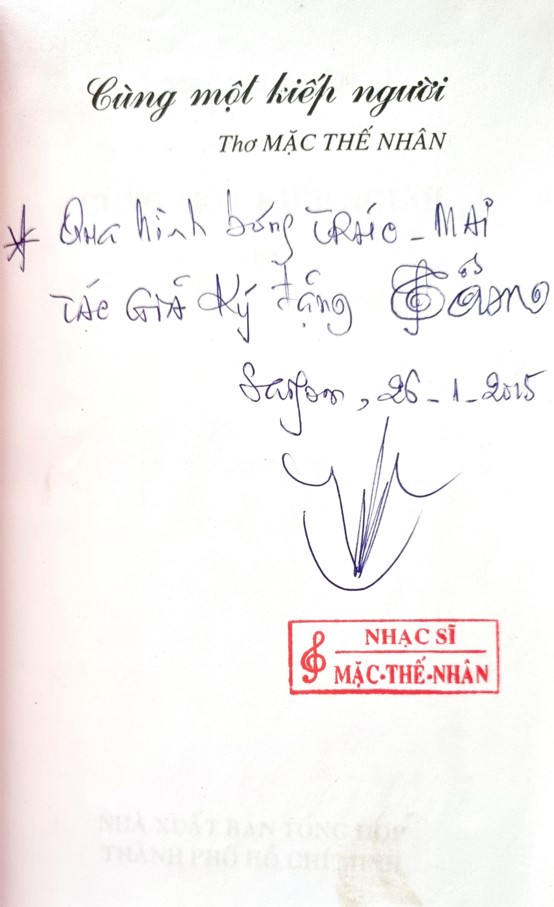 Cùng một kiếp người
Thơ MẶC THẾ NHÂN
* Qua hình bóng TRÚC - MAI
TÁC GIẢ Ký Tặng
Saigon, 26-1-2015
NHẠC SĨ
MẶC-THẾ-NHÂN
NHÀ XUẤT BẢN TỔNG HỢP
THÀNH PHỐ HỒ CHÍ MINH